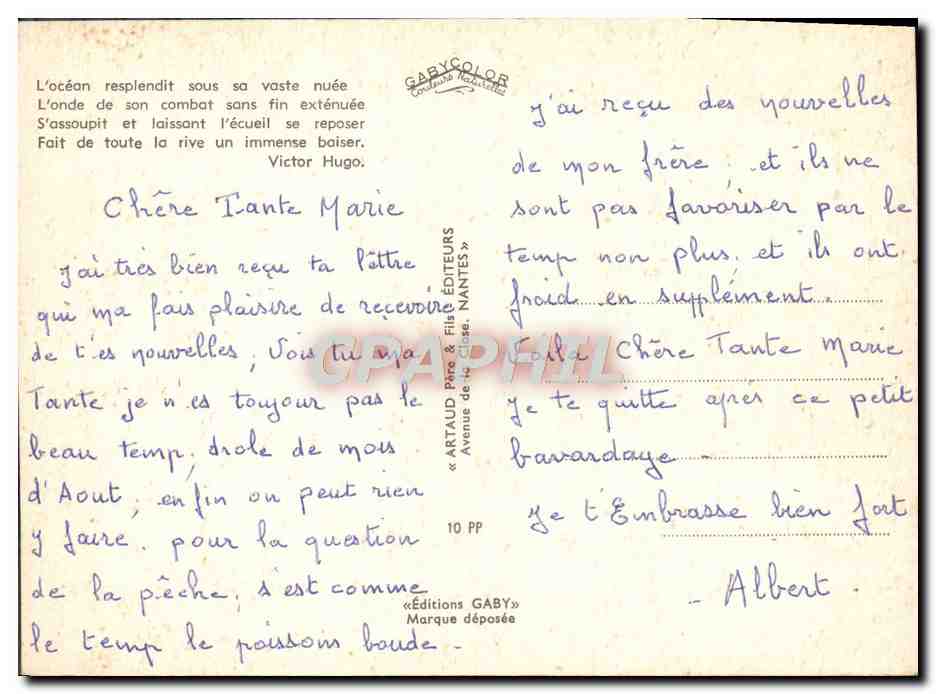 L'océan resplendit sous sa vaste nuée
L'onde de son combat sans fin exténuée
S'assoupit et laissant l'écueil se reposer
Fait de toute la rive un immense baiser.
Victor Hugo.
GABYCOLOR
Couleurs Naturelles
Chêre Tante Marie
J'ai très bien reçu ta lêttre
qui ma fais plaisire de reçevoire
de t'es nouvelles, Vois tu ma
Tante je n'es toujour pas le
beau temp, drole de mois
d'Aout, en fin on peut rien
y faire. pour la question
de la pêche, s'est comme
le temp le poissons boude -
« ARTAUD Père & Fils ÉDITEURS
Avenue de la Close. NANTES »
10 PP
«Éditions GABY»
Marque déposée
J'ai reçu des nouvelles
de mon frêre, et ils ne
sont pas favoriser par le
temp non plus, et ils ont
froid en supplément.
Voila Chêre Tante Marie
Je te quitte apres ce petit
bavardage -
Je t'Embrasse bien fort
- Albert -
CPAPHIL